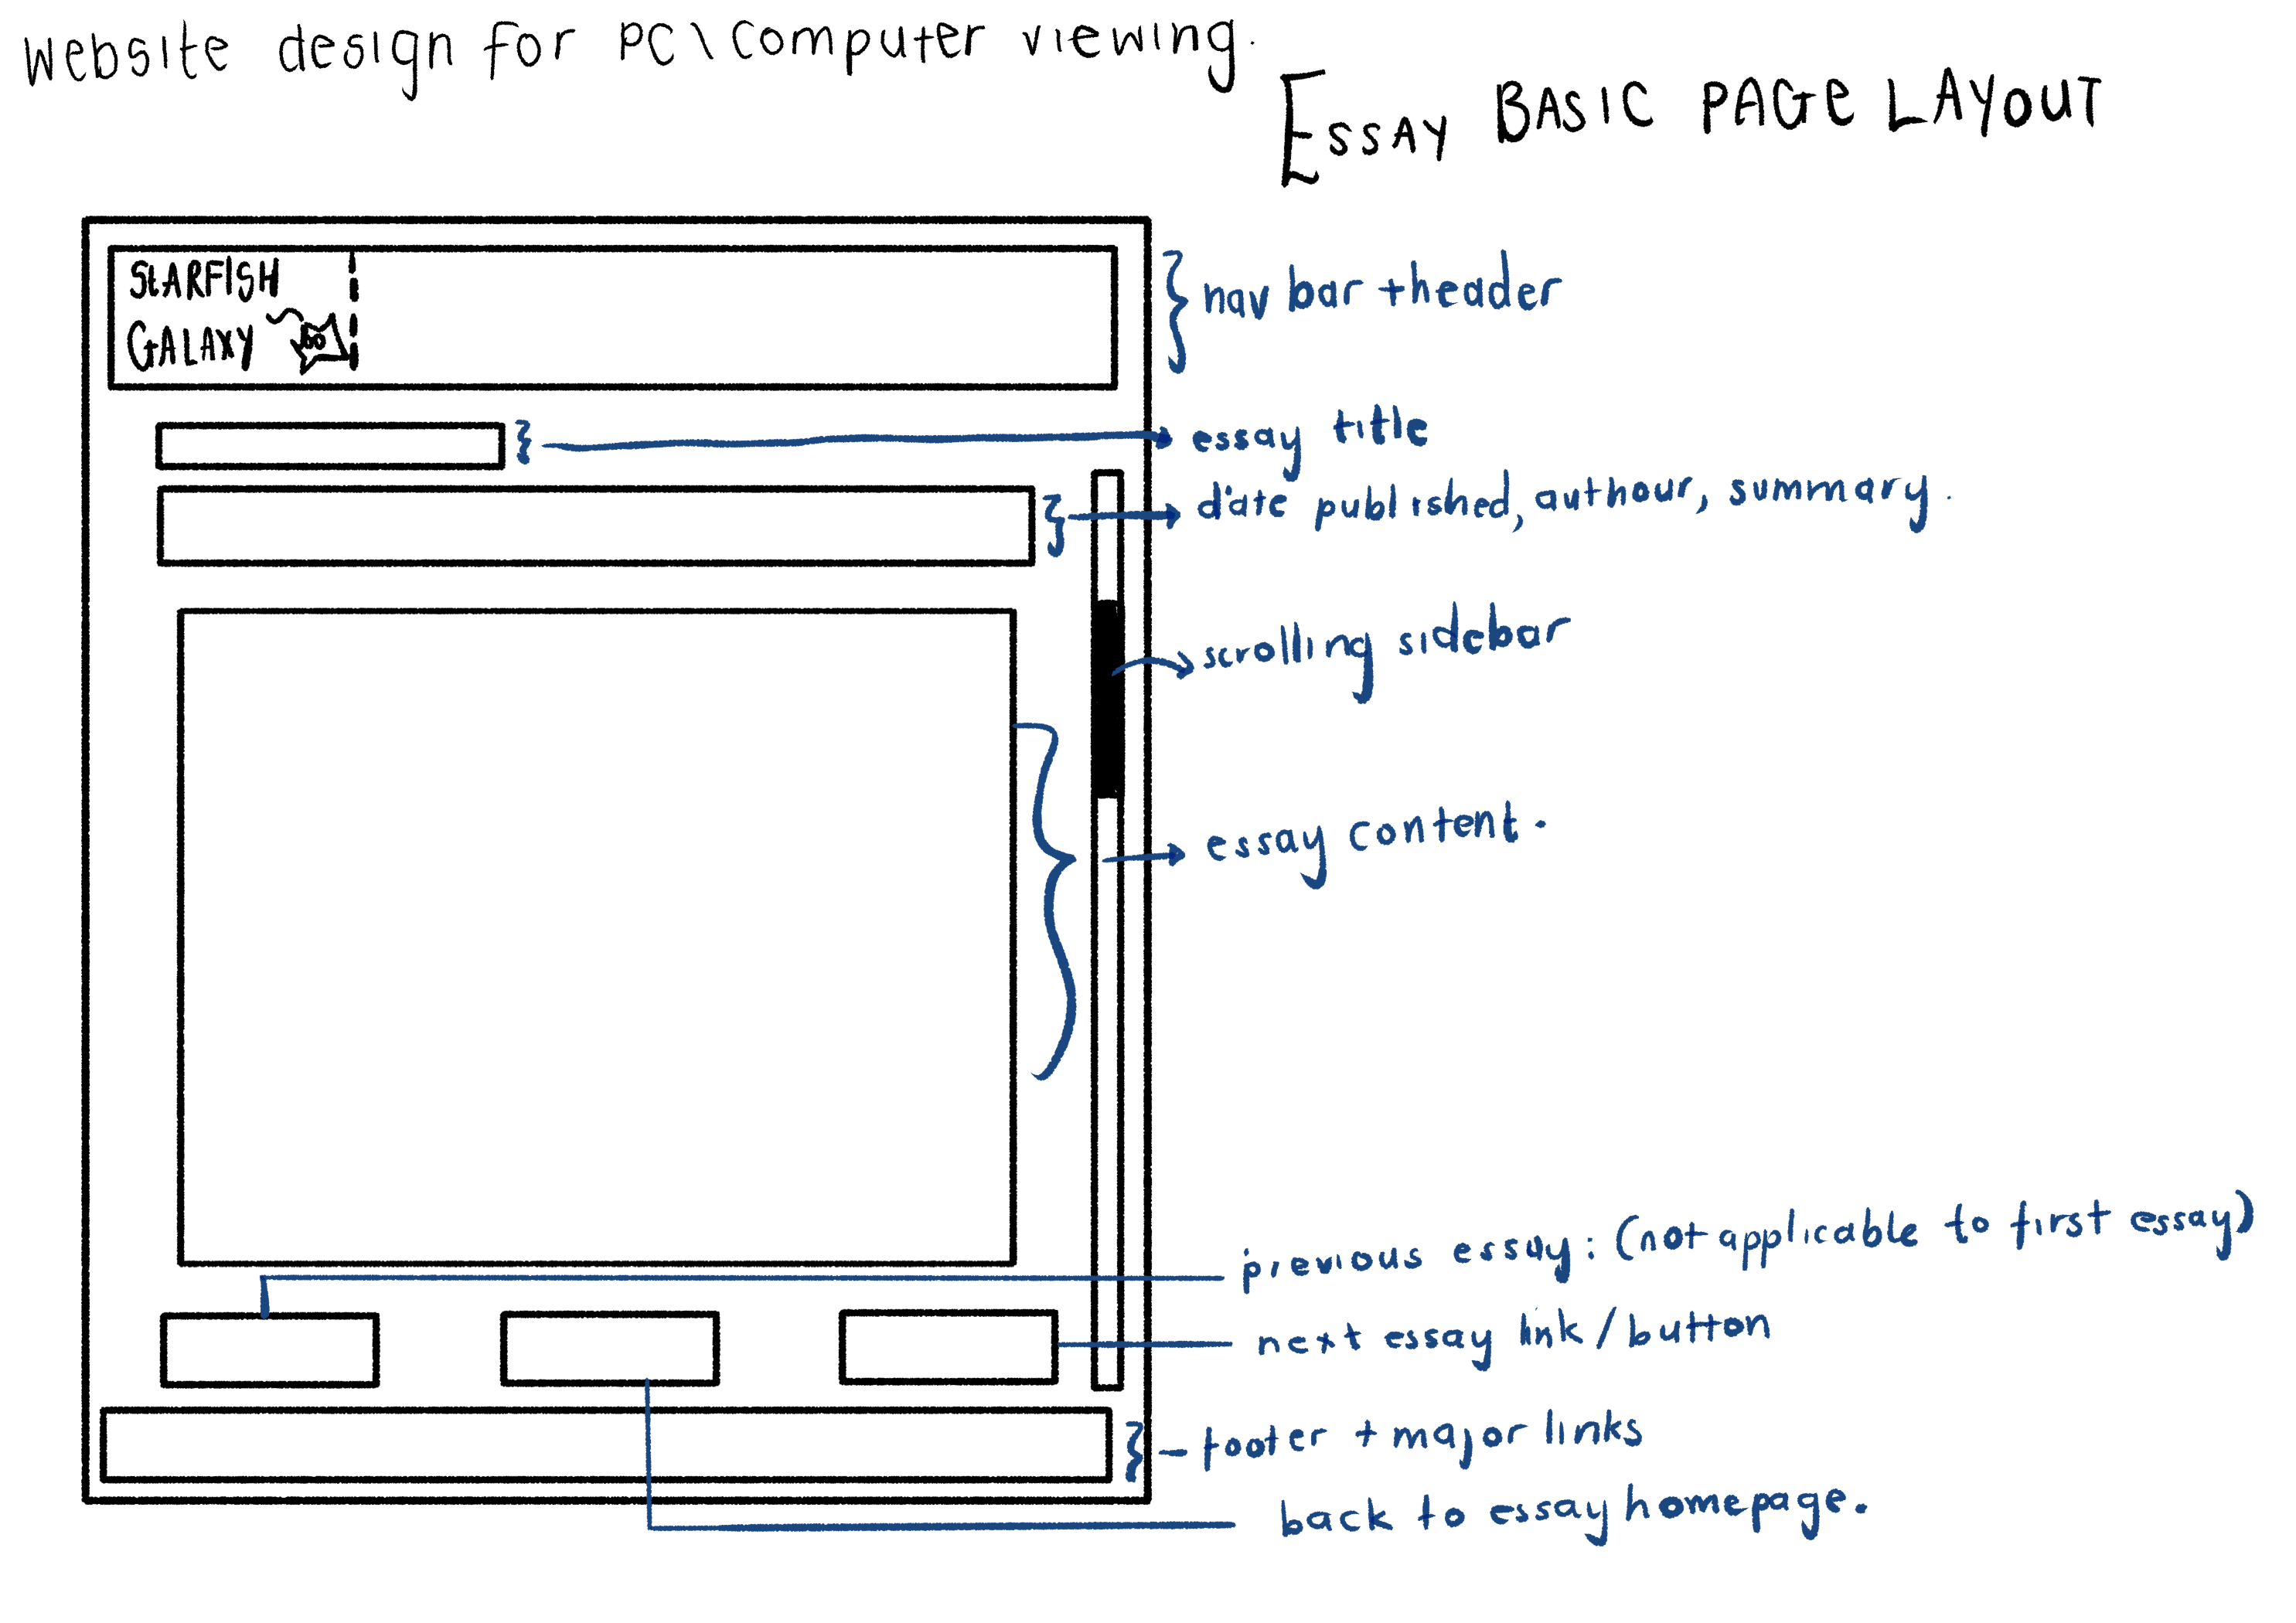 Website design for PC\Computer viewing.
ESSAY BASIC PAGE LAYOUT
STARFISH
GALAXY
nav bar + header
essay title
date published, authour, summary.
scrolling sidebar
essay content.
previous essay: (not applicable to first essay)
next essay link/button
footer + major links
back to essay homepage.